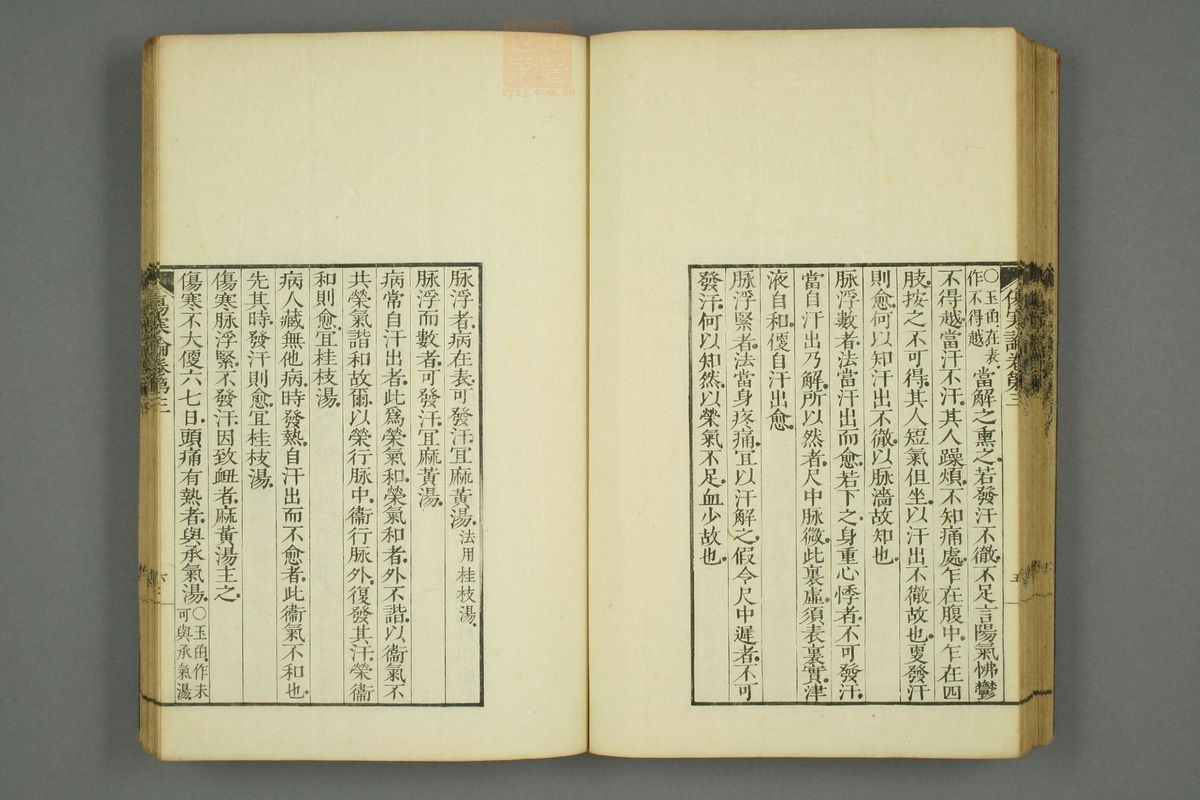 傷寒論卷第三
五
○玉函在表
作不得越
當解之熏之若發汗不徹不足言陽氣怫鬱
不得越當汗不汗其人躁煩不知痛處乍在腹中乍在四
肢按之不可得其人短氣但坐以汗出不徹故也更發汗
則愈何以知汗出不徹以脉濇故知也
脉浮數者法當汗出而愈若下之身重心悸者不可發汗
當自汗出乃解所以然者尺中脉微此裏虛須表裏實津
液自和便自汗出愈
脉浮緊者法當身疼痛宜以汗解之假令尺中遲者不可
發汗何以知然以榮氣不足血少故也
脉浮者病在表可發汗宜麻黃湯法用桂枝湯
脉浮而數者可發汗宜麻黃湯
病常自汗出者此爲榮氣和榮氣和者外不諧以衞氣不
共榮氣諧和故爾以榮行脉中衞行脉外復發其汗榮衞
和則愈宜桂枝湯
病人藏無他病時發熱自汗出而不愈者此衞氣不和也
先其時發汗則愈宜桂枝湯
傷寒脉浮緊不發汗因致衄者麻黃湯主之
傷寒不大便六七日頭痛有熱者與承氣湯
○玉函作未
可與承氣湯
傷寒論卷第三
六
zysj.com.cn